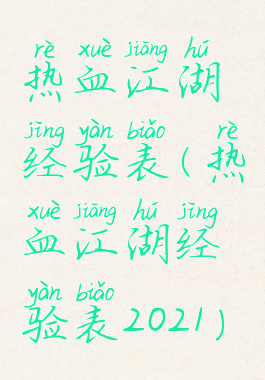 rè xuè jiāng hú
热血江湖
jīng yàn biǎo rè
经验表(热
xuè jiāng hú jīng
血江湖经
yàn biǎo
验表2021)